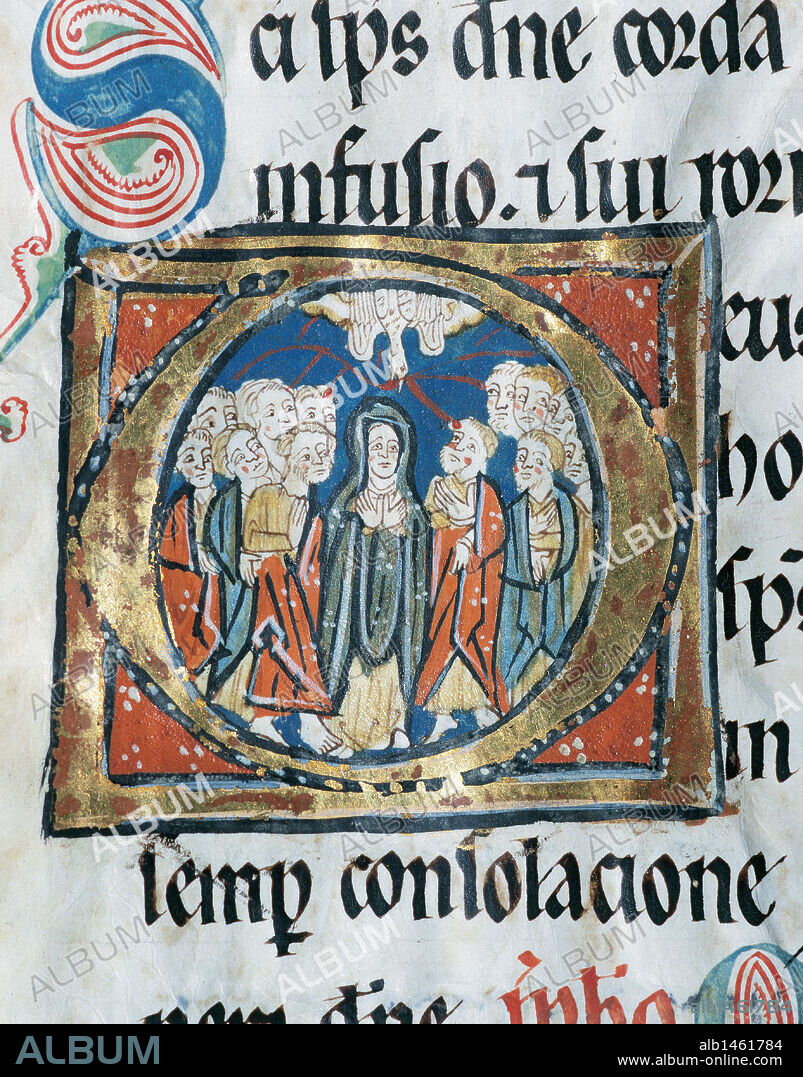 Sci sps dne corda
infusio. ⁊ sui rori
Deus
ho
sps
in
semꝑ consolacione
nem dne
ALBUM
alb1461784
www.album-online.com